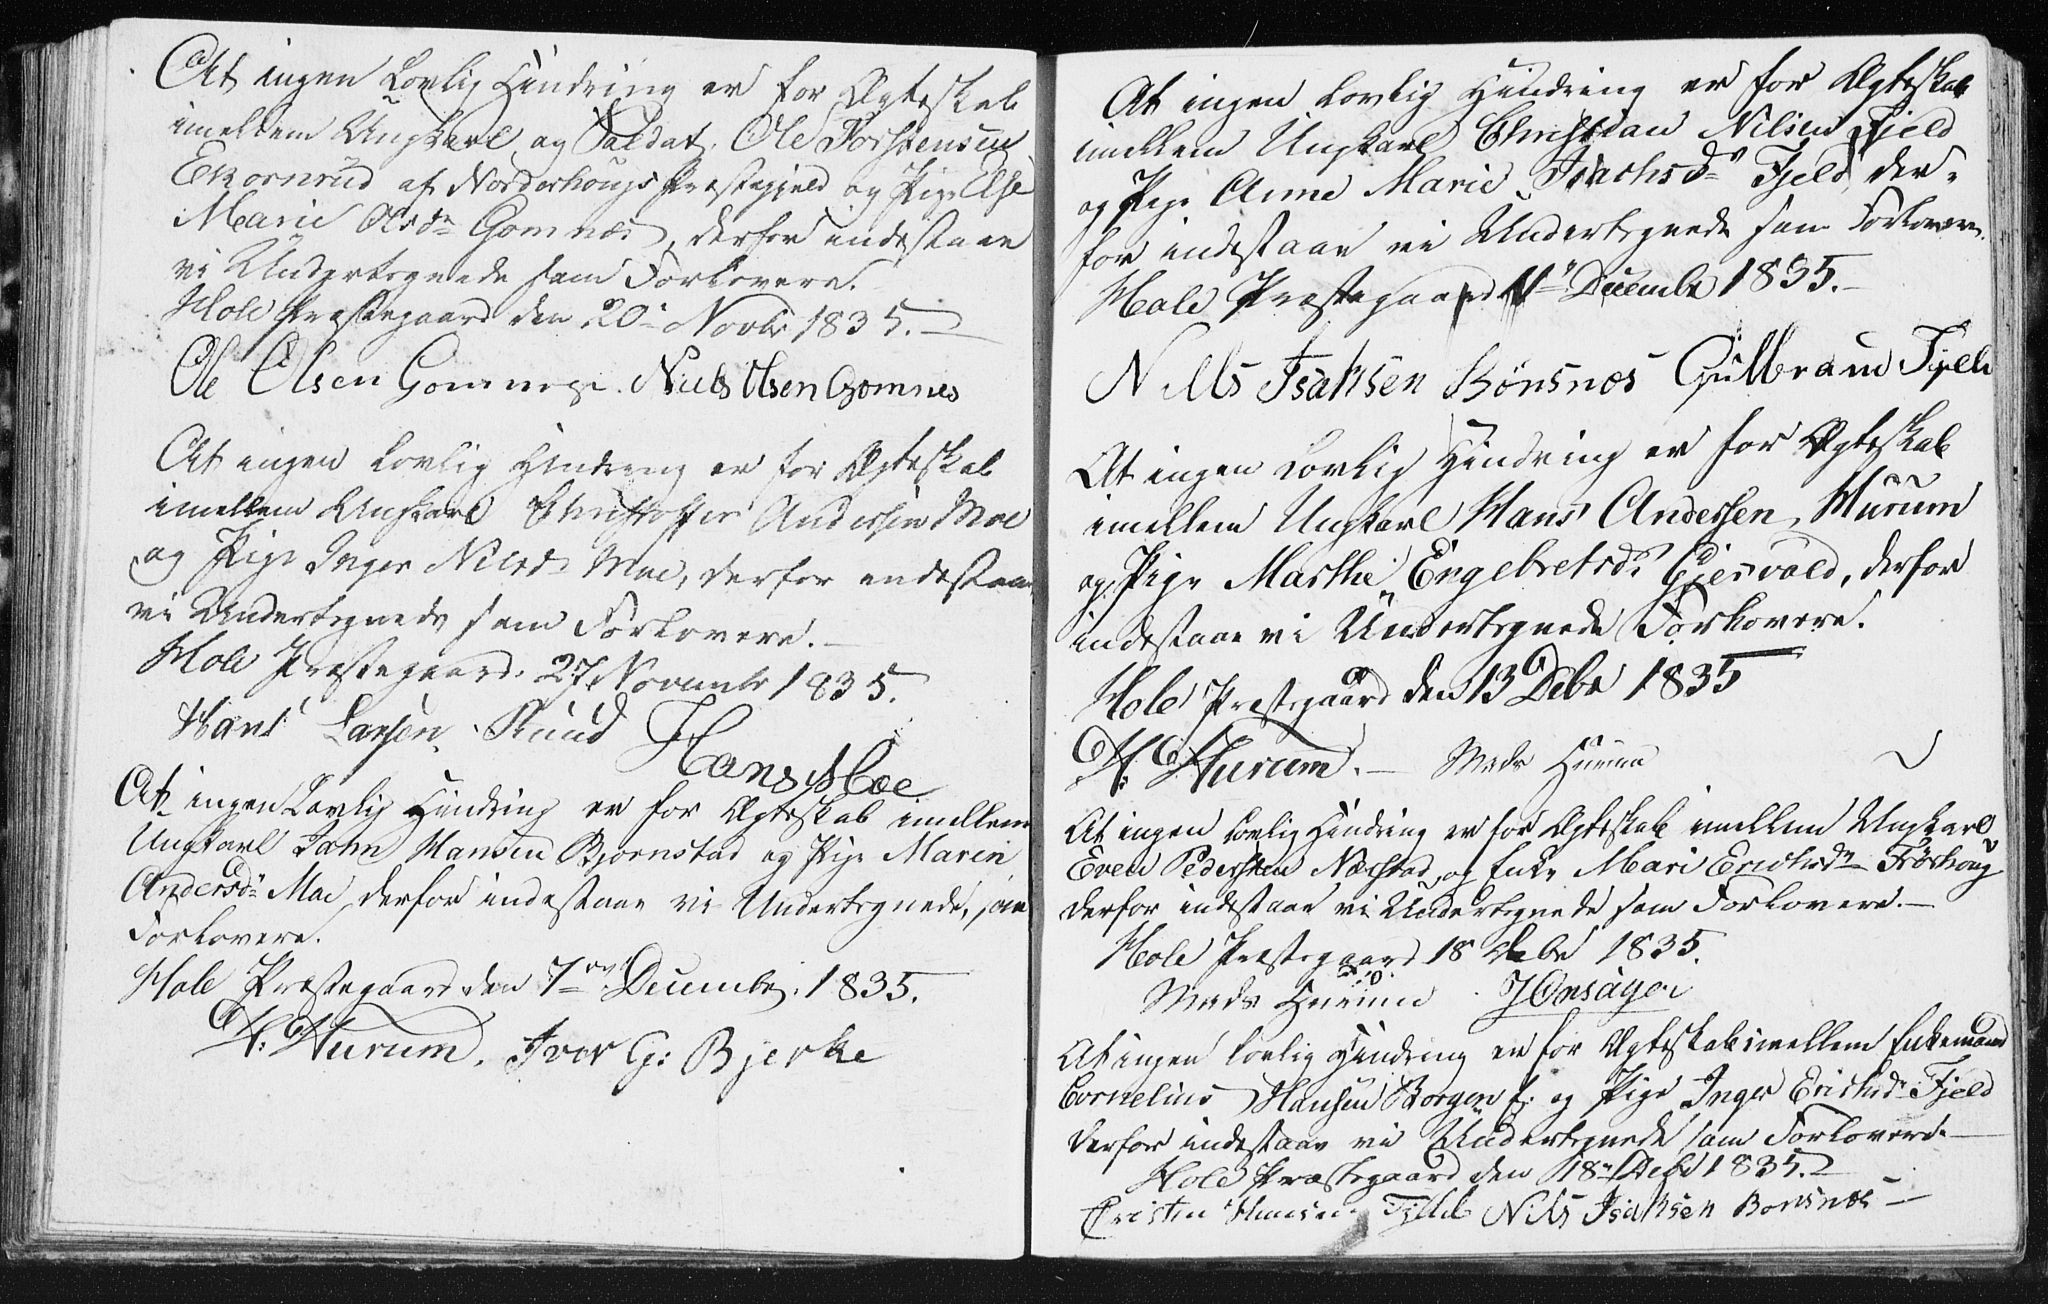 At ingen Lovlig Hindring er for Ægteskab
imellem Ungkarl og Soldat Ole Torstensen
Ekornrud af Norderhougs Præstegjeld og Pige Else
Marie Olsdr Gomnæs, derfor indestaae
vi Undertegnede som Forlovere.
Hole Præstegaard den 20de Novbr 1835.
Ole Olsen Gomnæs. Niels Olsen Gomnes
At ingen Lovlig Hindring er for Ægteskab
imellem Ungkarl Christoffer Andersen Moe
og Pige Inger Nilsdr Moe, derfor indestaae
vi Undertegnede som Forlovere.
Hole Præstegaard. 27 Novembr 1835.
Hans Larsen Ruud Hans Moe
At ingen Lovlig Hindring er for Ægteskab imellem
Ungkarl John Hansen Bjørnstad og Pige Maren
Andersdr Moe derfor indestaae vi Undertegnede, som
Forlovere.
Hole Præstegaard den 7de Decembr. 1835.
H. Hurum. Iver G: Bjerke
At ingen Lovlig Hindring er for Ægteskab
imellem Ungkarl Christian Nilsen Fjeld
og Pige Anne Marie Isachsdr Fjeld der-
for indestaae vi Undertegnede som Forlovere.
Hole Præstegaard 11te Decembr 1835.
Nills Isaksen Bönsnæs Gulbrand Fjeld
At ingen Lovlig Hindring er for Ægteskab
imellem Ungkarl Hans Anderssen Hurum
og Pige Marthe Engebretsdr Gjesvold, derfor
indestaae vi Undertegnede Forlovere.
Hole Præstegaard den 13 Debr 1835
H. Hurum. Mads Hurum
At ingen Lovlig Hindring er for Ægteskab imellem Ungkarl
Even Pedersen Næsstad og Enke Mari Erichsdr Frøshoug
derfor indestaae vi Undertegnede som Forlovere.
Hole Præstegaard 18 Debr 1835.
Mads Hurum J Onsager
At ingen Lovlig Hindring er for Ægteskab imellem Enkemand
Cornelius Hansen Borgen E. og Pige Inger Erichsdr Fjeld
derfor indestaae vi Undertegnede som Forlovere
Hole Præstegaard den 18de Debr 1835.
Cristen Hansen Fjeld Nils Isaksen Bonsnæs